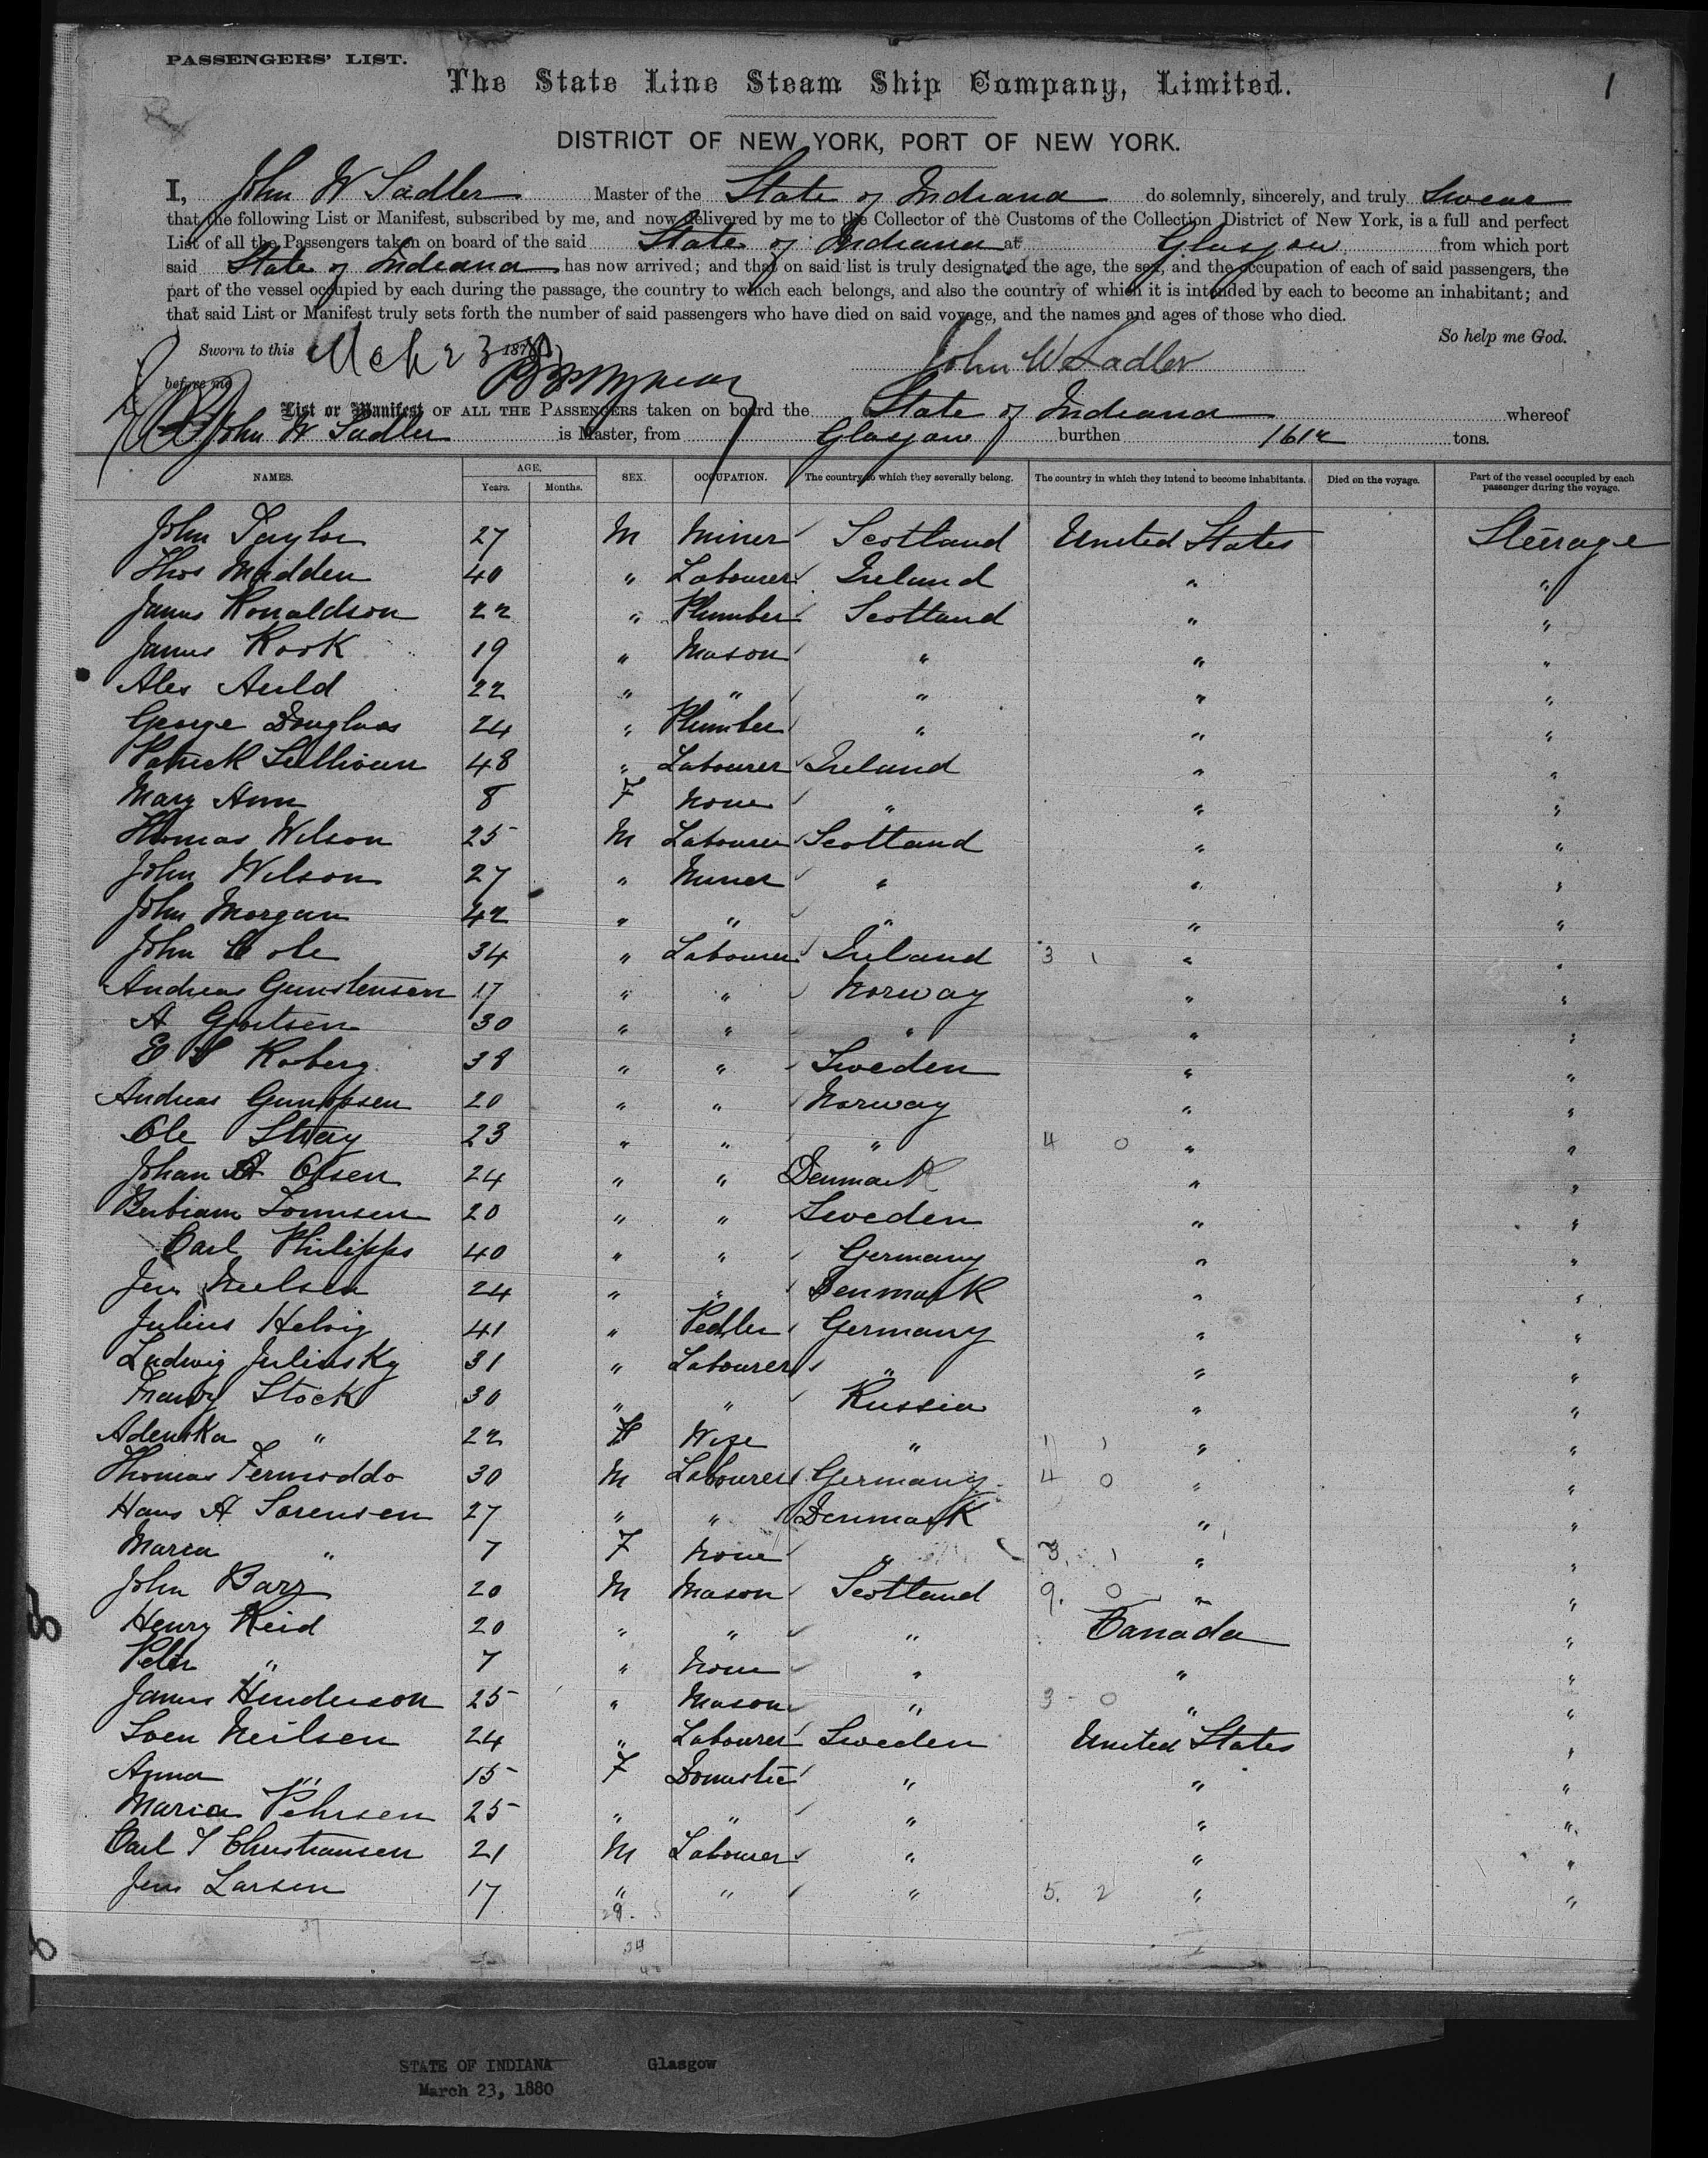 PASSENGERS' LIST.
1
The State Line Steam Ship Company, Limited.
DISTRICT OF NEW YORK, PORT OF NEW YORK.
I, John W Sadler Master of the State of Indiana do solemnly, sincerely, and truly Swear
that the following List or Manifest, subscribed by me, and now delivered by me to the Collector of the Customs of the Collection District of New York, is a full and perfect
List of all the Passengers taken on board of the said State of Indiana at Glasgow from which port
said State of Indiana has now arrived; and that on said list is truly designated the age, the sex, and the occupation of each of said passengers, the
part of the vessel occupied by each during the passage, the country to which each belongs, and also the country of which it is intended by each to become an inhabitant; and
that said List or Manifest truly sets forth the number of said passengers who have died on said voyage, and the names and ages of those who died.
So help me God.
Sworn to this Mch 23 187
John W Sadler
before me
List or Manifest OF ALL THE PASSENGERS taken on board the State of Indiana whereof
John W Sadler is Master, from Glasgow burthen 1612 tons.
NAMES. AGE. Years. Months. SEX. OCCUPATION. The country to which they severally belong. The country in which they intend to become inhabitants. Died on the voyage. Part of the vessel occupied by each passenger during the voyage.
John Taylor 27 M Miner Scotland United States Steerage
Thos Madden 40 " Labourer Ireland " "
James Ronaldson 22 " Plumber Scotland " "
James Rook 19 " Mason " " "
Alex Auld 22 " " " " "
George Douglas 24 " Plumber " " "
Patrick Sullivan 48 " Labourer Ireland " "
Mary Ann 8 F None " " "
Thomas Wilson 25 M Labourer Scotland " "
John Wilson 27 " Miner " " "
John Morgan 42 " " " " "
John Cole 34 " Labourer Ireland 3 1 " "
Andreas Gunstensen 17 " " Norway " "
A 30 " " " " "
Roberg 38 " " Sweden " "
Andreas 20 " " Norway " "
Ole Stray 23 " " " 4 0 " "
Johan A Olsen 24 " " Denmark " "
20 " " Sweden " "
Carl Philipps 40 " " Germany " "
Jens Neilsen 24 " " Denmark " "
Julius Helvig 41 " Pedler Germany " "
Ludwig Juliusky 31 " Labourer " " "
Stock 30 " " Russia " "
" 22 F Wife " 1 1 " "
Thomas 30 M Labourer Germany 4 0 " "
Hans A Sorensen 27 " " Denmark " "
Maria " 7 F None " 3. 1 " "
John Barr 20 M Mason Scotland 9. 0 " "
Henry Reid 20 " " " Canada "
Peter " 7 " None " " "
James Henderson 25 " Mason " 3 - 0 " "
Sven Neilsen 24 " Labourer Sweden United States "
Anna " 15 F Domestic " " "
Maria Pehrsen 25 " " " " "
Carl J Christiansen 21 M Labourer " " "
Jens Larsen 17 " " " 5. 2 " "
STATE OF INDIANA Glasgow
March 23, 1880